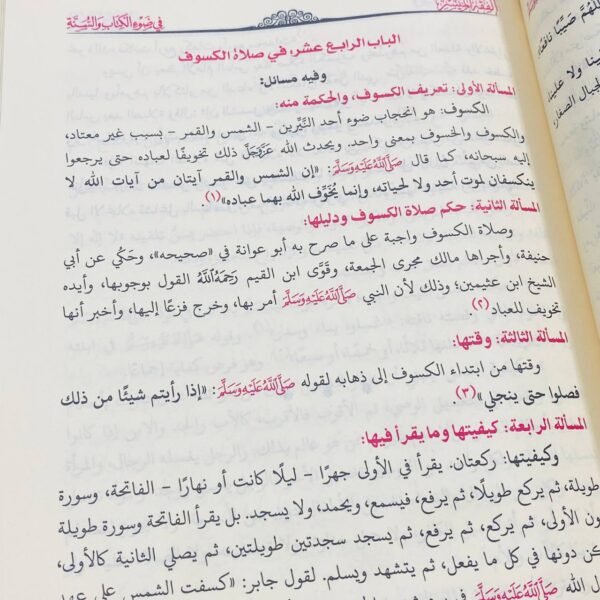 الفقه الميسر
في ضوء الكتاب والسنة
الباب الرابع عشر: في صلاة الكسوف
وفيه مسائل:
المسألة الأولى: تعريف الكسوف، والحكمة منه:
الكسوف: هو انحجاب ضوء أحد النَّيِّرين - الشمس والقمر - بسبب غير معتاد،
والكسوف والخسوف بمعنى واحد. ويحدث الله عَزَّوَجَلَّ ذلك تخويفًا لعباده حتى يرجعوا
إليه سبحانه، كما قال صَلَّى اللَّهُ عَلَيْهِ وَسَلَّمَ: «إن الشمس والقمر آيتان من آيات الله لا
ينكسفان لموت أحد ولا لحياته، وإنما يُخَوِّف الله بهما عباده»(١)
المسألة الثانية: حكم صلاة الكسوف ودليلها:
وصلاة الكسوف واجبة على ما صرح به أبو عوانة في «صحيحه»، وحُكي عن أبي
حنيفة، وأجراها مالك مجرى الجمعة، وقوَّى ابن القيم رَحِمَهُ اللَّهُ القول بوجوبها، وأيده
الشيخ ابن عثيمين؛ وذلك لأن النبي صَلَّى اللَّهُ عَلَيْهِ وَسَلَّمَ أمر بها، وخرج فزعًا إليها، وأخبر أنها
تخويف للعباد(٢)
المسألة الثالثة: وقتها:
وقتها من ابتداء الكسوف إلى ذهابه لقوله صَلَّى اللَّهُ عَلَيْهِ وَسَلَّمَ: «إذا رأيتم شيئًا من ذلك
فصلوا حتى ينجلي»(٣).
المسألة الرابعة: كيفيتها وما يقرأ فيها:
وكيفيتها: ركعتان. يقرأ في الأولى جهرًا - ليلًا كانت أو نهارًا - الفاتحة، وسورة
طويلة، ثم يركع طويلًا، ثم يرفع، فيسمع، ويحمد، ولا يسجد. بل يقرأ الفاتحة وسورة طويلة
ون الأولى، ثم يركع، ثم يرفع، ثم يسجد سجدتين طويلتين، ثم يصلي الثانية كالأولى،
كن دونها في كل ما يفعل، ثم يتشهد ويسلم. لقول جابر: «كسفت الشمس على عهد
الله صَلَّى اللَّهُ عَلَيْهِ وَسَلَّمَ في
للهم صيبًا نافعًا
ينا ولا علينا
لجبال الصغار